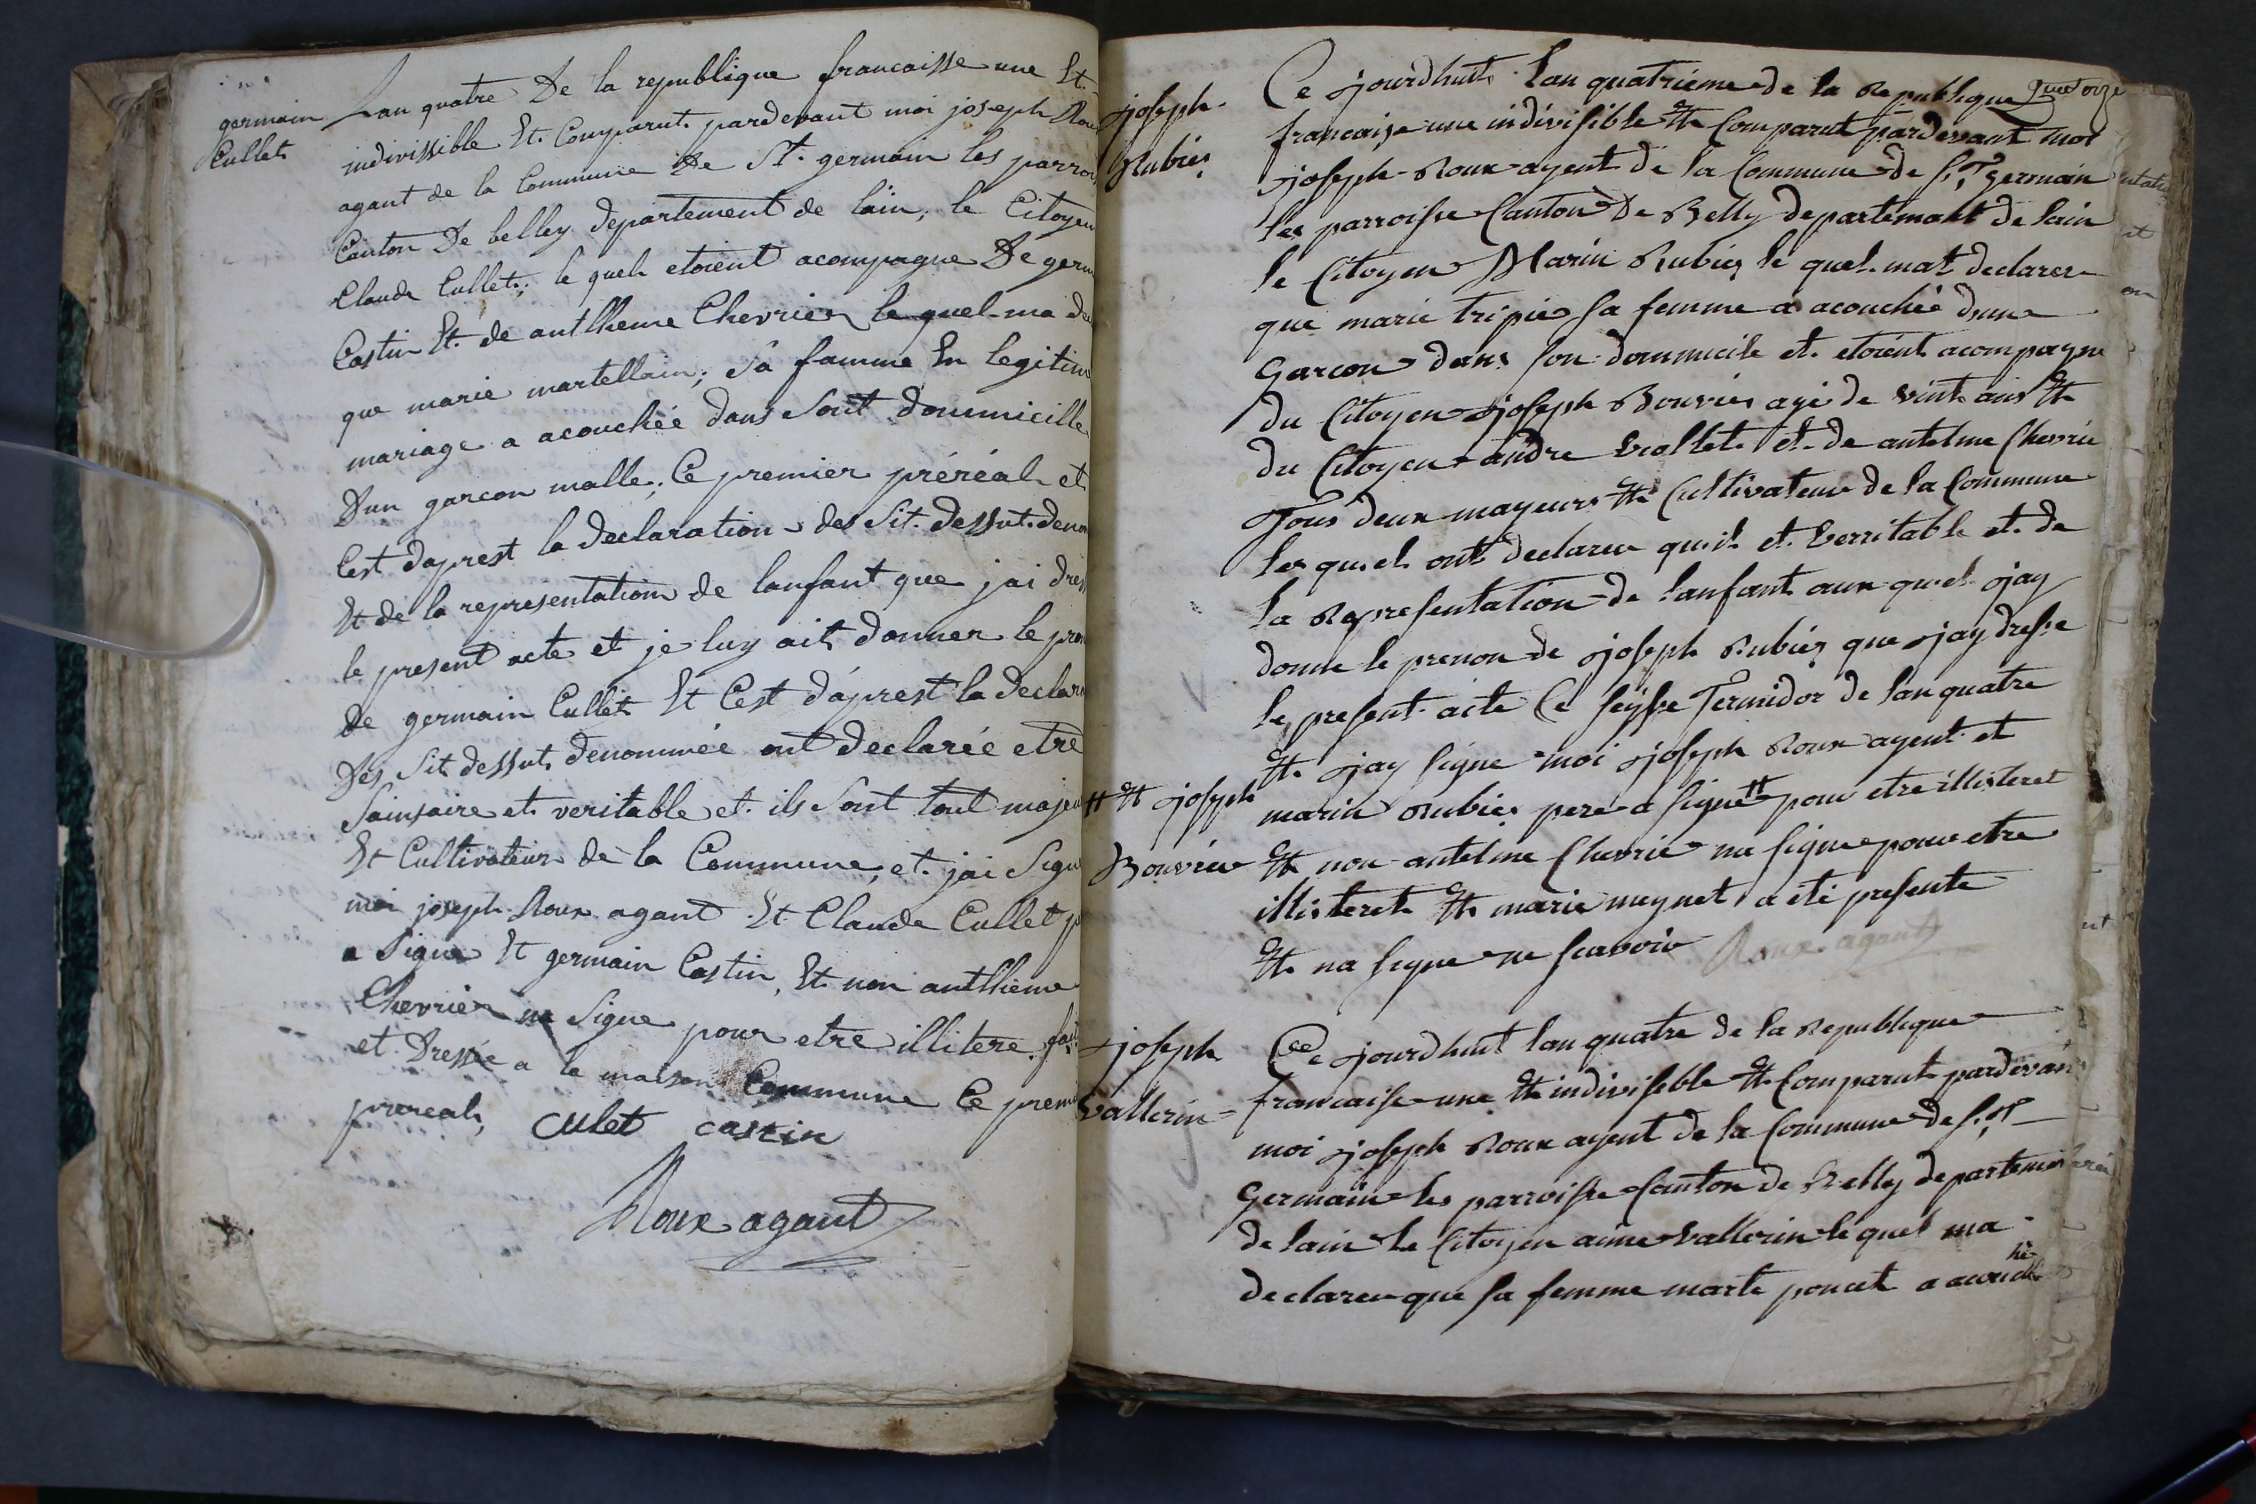 germain
Cullet
Lan quatre De la republique francaisse une Et
indivissible Et Comparut pardevant moi joseph Roux
agant de la Commune De St. germain les parrois
Canton De belley departement de lain, le Citoyen
Claude Cullet; le quel etoient acompagne De germ
Castin Et de anthheme Chevrier le quel ma de
que marie martellain; Sa famme En legitim
mariage a acouchée dans Sont dommicille
Dun garcon malle; Ce premier préréal et
Cest daprest la declaration des Sit dessut denom
Et de la representation de lanfant que jai dress
le present acte et je luy ait donner le pren
De germain Cullet Et Cest daprest la declara
Des Sit dessut denommée ont declarée etre
Sainsaire et veritable et ils Sont tout majeu
Et Cultivateur de la Commune, et jai Signe
moi joseph Roux agant Et Claude Cullet p
a Signe Et germain Castin, Et non anthheme
Chevrier ne Signe pour etre illitere. fait
et Dressée a la maison Commune Ce premi
prereal, culet castin
Roux agant
quatorze
joseph
Rubier
Ce jourdhuit lan quatrieme de la Republique
francaise une indivisible Et Comparut pardevant moi
joseph Roux agent de la Commune de St germain
les parroisse Canton De Belly departemant de lain
le Citoyen Marin Rubier le quel mat declarer
que marie tripier sa femme a acouchée dune
garcon dans son dommicile et etoient acompagne
du Citoyen joseph Bouvier agé de vint ans Et
du Citoyen andre viollet et de antelme Chevrie
Tous deux mayeurs Et Cultivateur de la Commune
les quel ont declarer quil et verritable et de
la Representation de lanfant aux quel jay
donne le prenon de joseph Rubier que jay dresse
le present acte Ce seysse Termidor de lan quatre
Et jay signe moi joseph Roux agent et
marin Rubier pere a signe # pour etre illisteret
# Et joseph
Bouvier
Et non antelme Chevrie ne signe pour etre
illisteret Et marie meynet a eté presente
Et na signe ne scavoir Roux agant
joseph
vallerin
Ce jourdhuit lan quatre de la Republique
francaise une Et indivisible Et Comparut pardevan
moi joseph Roux agent de la Commune de St
Germain les parroisse Canton de Belly departemen
de lain Le Citoyen aime vallerin le quel ma
declarer que sa femme marte poncet a acouché